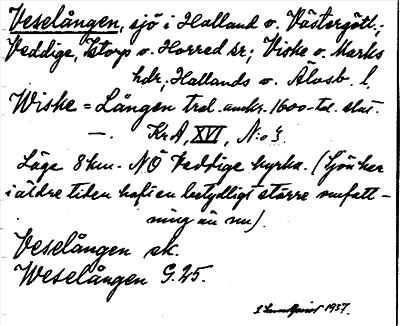 Veselången, sjö i Halland o. Västergötl.;
Veddige, Istorp o. Horred sr; Viske o. Marks
hdr, Hallands o. Älvsb. l.
Wiske = Längen trol. ank. 1600-tal. slut.
—. Kr A, XVI, N:o 3.
Läge 8 km. NÖ Veddige kyrka. (Sjön har
i äldre tiden haft en betydligt större omfatt-
ning än nu).
Veselången ek.
Weselången G. 25.
S. Lundqvist 1937.